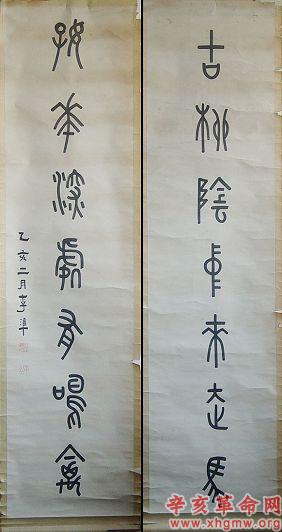 古柳陰中來走馬
好華深處有鳴禽
乙亥二月李準
辛亥革命网
www.xhgmw.org